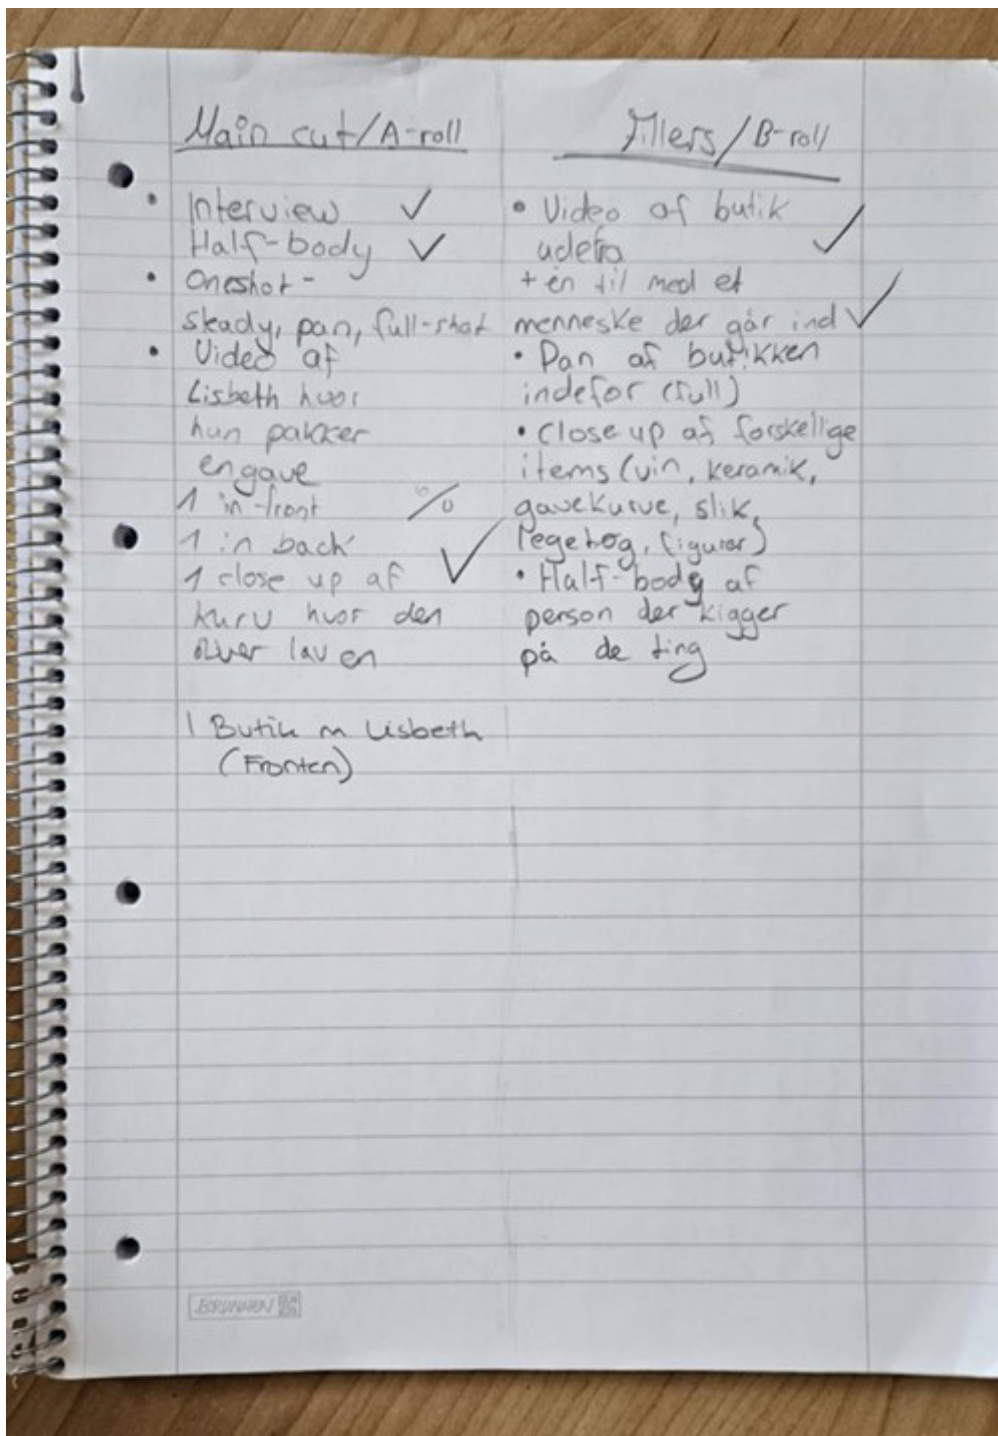 Main cut/A-roll
• Interview ✓
Half-body ✓
• Oneshot -
steady, pan, full-shot
• Video af
Lisbeth hvor
hun pakker
en gave
1 in-front
1 in back
1 close up af ✓
kurv hvor den
bliver laven
1 Butik m Lisbeth
(Fronten)
Fillers/B-roll
• Video af butik
udefra ✓
+ én til med et
menneske der går ind ✓
• Pan af butikken
indefor (full)
• Close up af forskellige
items (vin, keramik,
gavekurve, slik,
figurer)
• Half-body af
person der kigger
på de ting
BRUNNEN